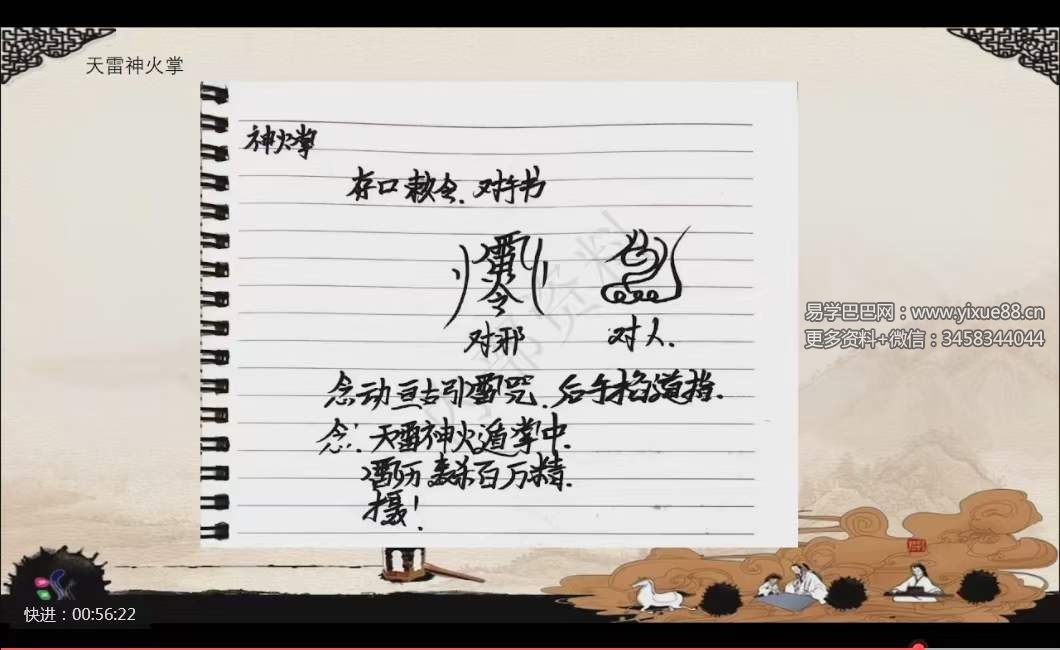 天雷神火掌
神火掌
存口敕令.对手书
雷
令
对邪 对人.
念动亘古引雷咒.后手掐道指.
念:天雷神火遁掌中.
轰杀百万精.
摄!
内部资料
易学巴巴网:www.yixue88.cn
更多资料+微信:3458344044
快进:00:56:22